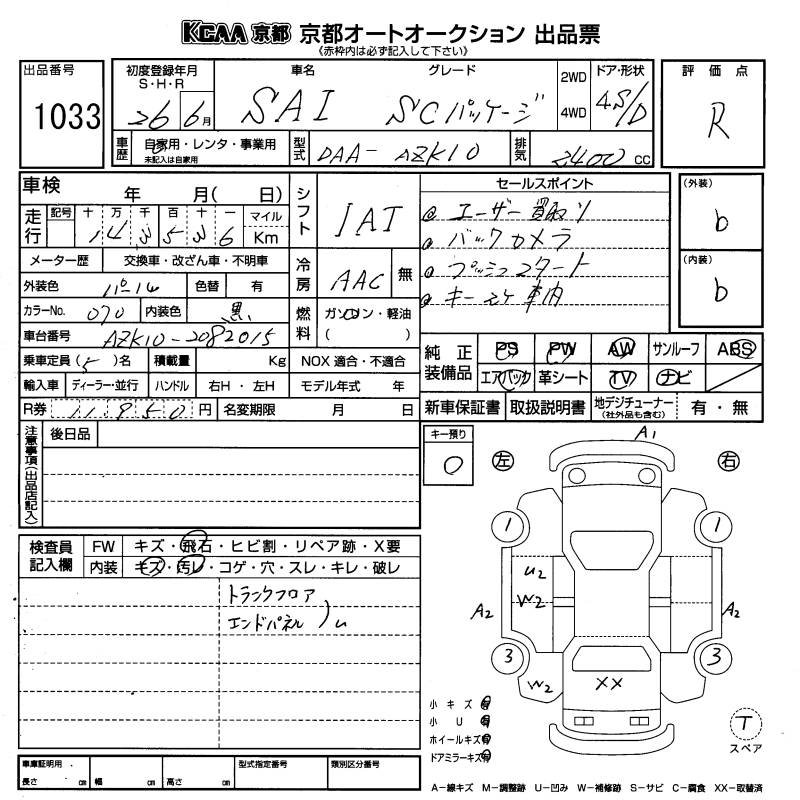 KCAA 京都 京都オートオークション 出品票
《赤枠内は必ず記入して下さい》
出品番号
1033
初度登録年月
S・H・R
26 6月
車名
SAI
グレード
SCパッケージ
2WD
4WD
ドア・形状
4S/D
評価点
R
車歴
自家用・レンタ・事業用
未記入は自家用
型式
DAA-AZK10
排気
2400 CC
車検 年 月( 日)
走行
記号 十 万 千 百 十 一 マイル
143536 Km
メーター歴 交換車・改ざん車・不明車
外装色 パール
色替 有
カラーNo. 070
内装色 黒
車台番号 AZK10-2082015
乗車定員 (5)名 積載量 Kg
NOX 適合・不適合
輸入車 ディーラー・並行 ハンドル 右H・左H
モデル年式 年
R券 11950円
名変期限 月 日
シフト IAT
冷房 AAC 無
燃料
ガソリン・軽油
( )
セールスポイント
◎ ユーザー買取り
◎ バックカメラ
◎ プッシュスタート
◎ キースケ車内
(外装)
b
(内装)
b
純正装備品
PS PW AW サンルーフ ABS
エアバック 革シート TV ナビ
新車保証書 取扱説明書
地デジチューナー
(社外品も含む)
有・無
注意事項(出品店記入)
後日品
キー預り
0
検査員記入欄
FW キズ・飛石・ヒビ割・リペア跡・X要
内装 キズ・汚レ・コゲ・穴・スレ・キレ・破レ
トランクフロア
エンドパネル )u
左 右
A1
1 1
U2
W2
A2 A2
3 3
W2
XX
小キズ 有
小 U 有
ホイールキズ 有
ドアミラーキズ 有
T
スペア
車庫証明用
長さ cm 幅 cm 高さ cm
型式指定番号
類別区分番号
A-線キズ M-調整跡 U-凹み W-補修跡 S-サビ C-腐食 XX-取替済